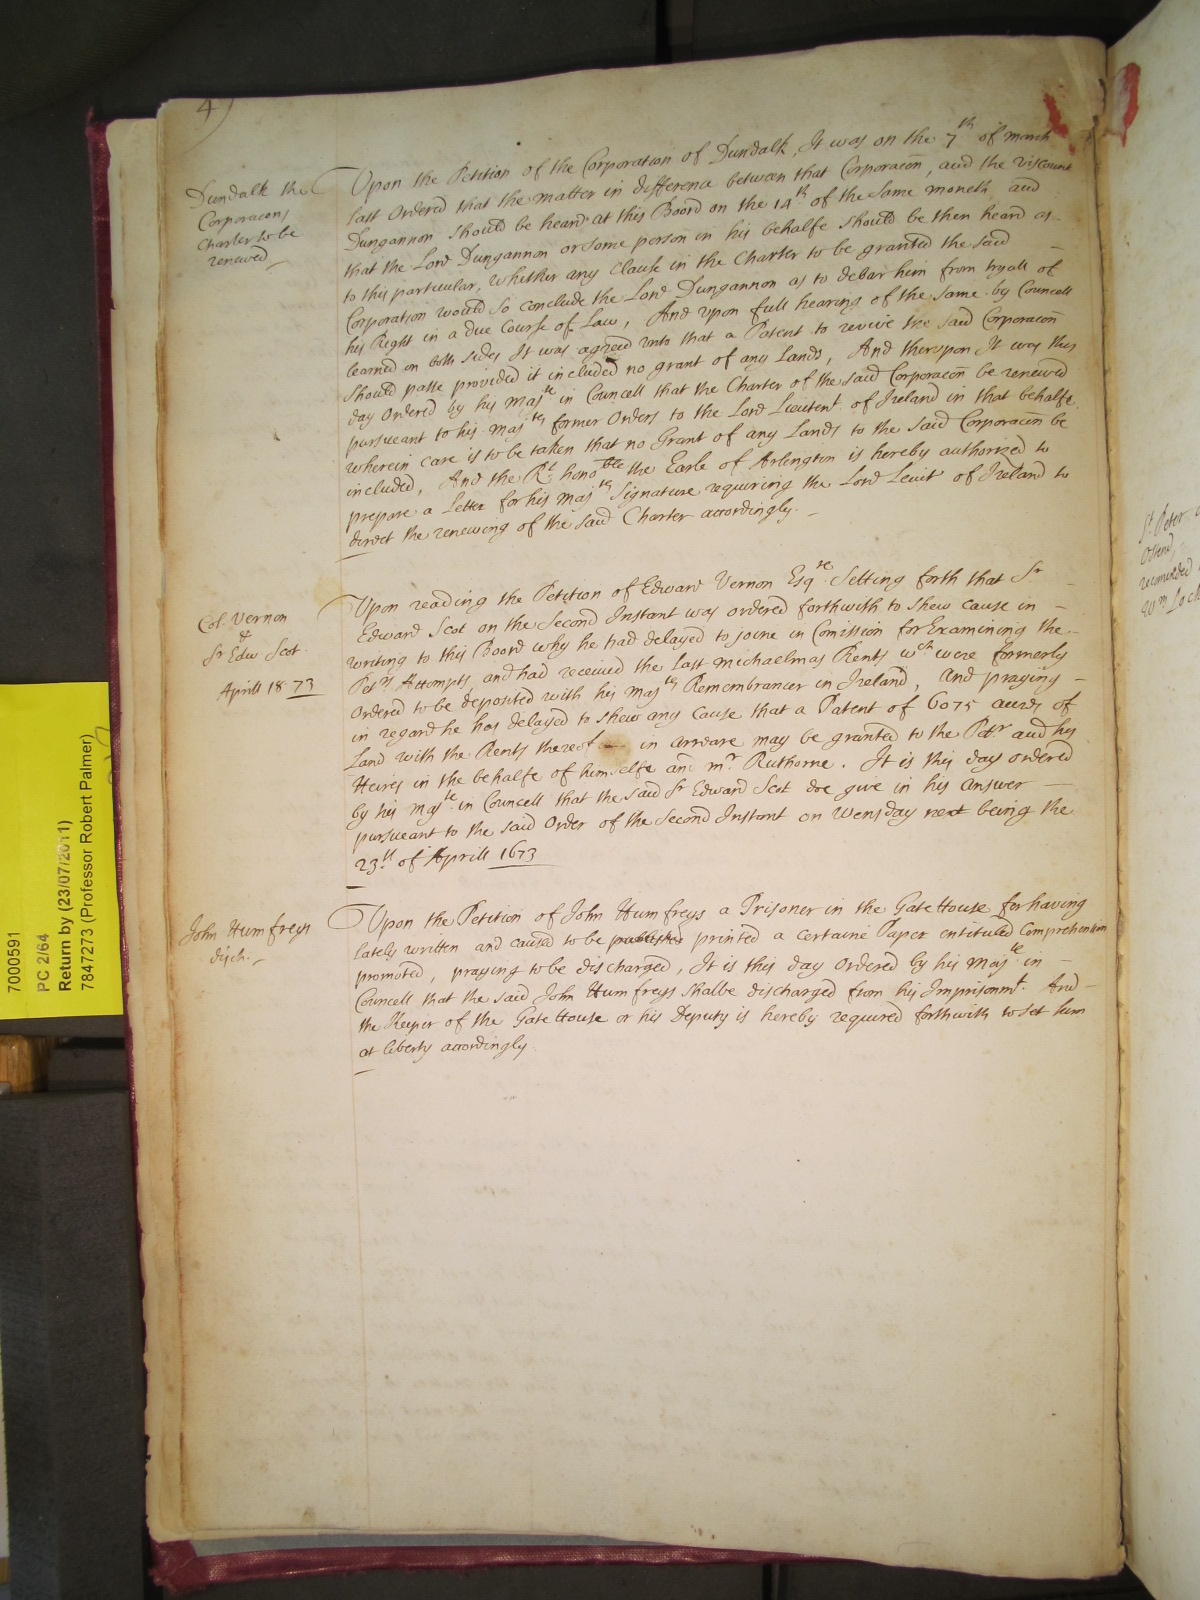 4)
Dundalk the
Corporacons
Charter to be
renewed
Upon the Petition of the Corporation of Dundalk, It was on the 7th of march
last Ordered that the matter in difference between that Corporacon, and the Viscount
Dungannon should be heard at this Board on the 14th of the same moneth and
that the Lord Dungannon or some person in his behalfe should be then heard as
to this particular, whether any Clause in the Charter to be granted the said
Corporation would so conclude the Lord Dungannon as to debar him from tryall of
his Right in a due Course of Law, And upon full hearing of the same by Councell
learned on both sides It was agreed unto that a Patent to revive the said Corporacon
should passe provided it included no grant of any Lands, And thereupon It was this
day Ordered by his Majte in Councell that the Charter of the said Corporacon be renewed
pursueant to his Majtes former Orders to the Lord Lieutent of Ireland in that behalfe
wherein care is to be taken that no Grant of any Lands to the said Corporacon be
included, And the Rt honoble the Earle of Arlington is hereby authorized to
prepare a Letter for his Majtes Signature requiring the Lord Leiut of Ireland to
direct the renewing of the said Charter accordingly.
Col. Vernon
&
Sr Edw Scot
Aprill 18 73
Upon reading the Petition of Edward Vernon Esqre Setting forth that Sr
Edward Scot on the Second Instant was ordered forthwith to shew cause in
writing to this Board why he had delayed to joine in Comission for Examining the
Petrs Attempts, and had received the last michaelmas Rents wch were formerly
Ordered to be deposited with his Majtes Remembrancer in Ireland, and praying
in regard he has delayed to shew any Cause that a Patent of 6075 acres of
Land with the Rents thereof in arreare may be granted to the Petr and his
Heires in the behalfe of himselfe and mr Ruthorne. It is this day ordered
by his Majte in Councell that the said Sr Edward Scot doe give in his answer
pursueant to the said Order of the Second Instant on Wensday next being the
23th of Aprill 1673
John Humfreys
disch.
Upon the Petition of John Humfreys a Prisoner in the Gate House for having
lately written and caused to be published printed a certaine Paper entituled Comprehension
promoted, praying to be discharged, It is this day Ordered by his Majte in
Councell that the said John Humfreys shalbe discharged from his Imprisonmt. And
the Keeper of the Gate House or his Deputy is hereby required forthwith to set him
at liberty accordingly
St Peter
Ostend,
recomended
Wm Lock
7000591
PC 2/64
Return by (23/07/2011)
7847273 (Professor Robert Palmer)